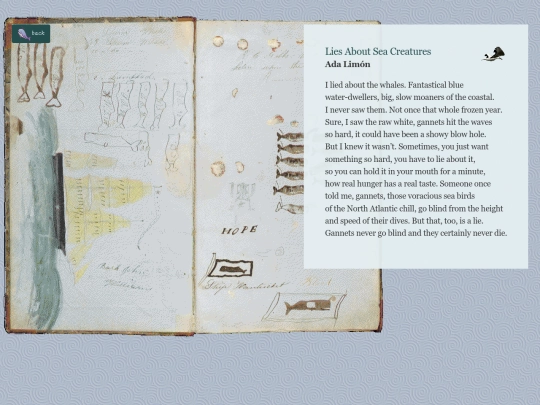 back
Lies About Sea Creatures
Ada Limón
I lied about the whales. Fantastical blue
water-dwellers, big, slow moaners of the coastal.
I never saw them. Not once that whole frozen year.
Sure, I saw the raw white, gannets hit the waves
so hard, it could have been a showy blow hole.
But I knew it wasn't. Sometimes, you just want
something so hard, you have to lie about it,
so you can hold it in your mouth for a minute,
how real hunger has a real taste. Someone once
told me, gannets, those voracious sea birds
of the North Atlantic chill, go blind from the height
and speed of their dives. But that, too, is a lie.
Gannets never go blind and they certainly never die.
HOPE